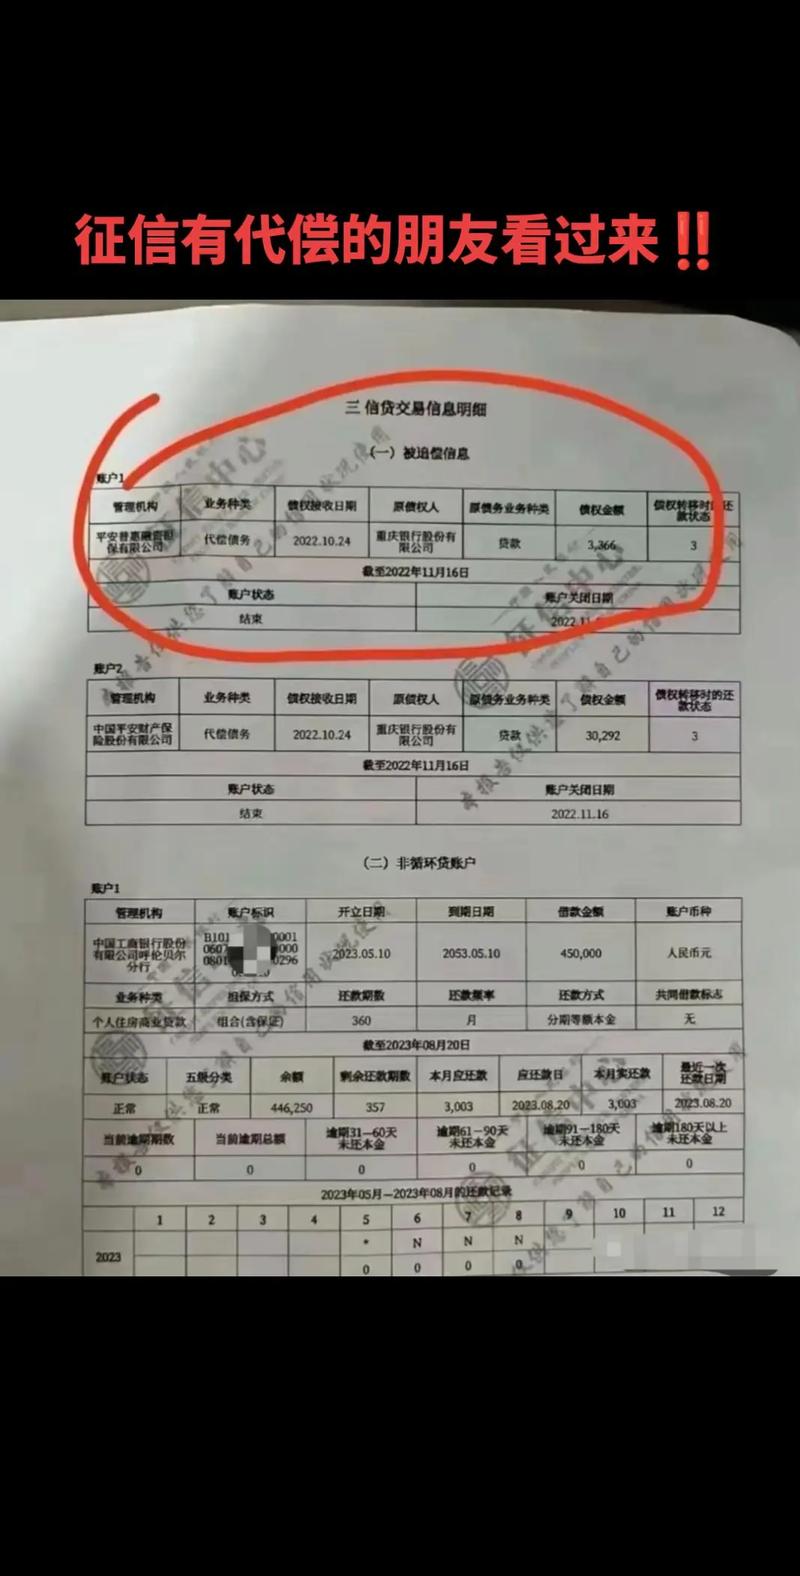 征信有代偿的朋友看过来‼️
三 信贷交易信息明细
（一）被追偿信息
账户1
管理机构 业务种类 债权接收日期 原债权人 原债务业务种类 债权金额 债权转移时的还款状态
平安普惠融资担保有限公司 代偿债务 2022.10.24 重庆银行股份有限公司 贷款 3,366 3
截至2022年11月16日
账户状态 账户关闭日期
结束 2022.11
账户2
管理机构 业务种类 债权接收日期 原债权人 原债务业务种类 债权金额 债权转移时的还款状态
中国平安财产保险股份有限公司 代偿债务 2022.10.24 重庆银行股份有限公司 贷款 30,292 3
截至2022年11月16日
账户状态 账户关闭日期
结束 2022.11.16
（二）非循环贷账户
账户1
管理机构 账户标识 开立日期 到期日期 借款金额 账户币种
中国工商银行股份有限公司呼伦贝尔分行 B101 0001 0607 000 0801 0296 2023.05.10 2053.05.10 450,000 人民币元
业务种类 担保方式 还款期数 还款频率 还款方式 共同借款标志
个人住房商业贷款 组合(含保证) 360 月 分期等额本金 无
截至2023年08月20日
账户状态 五级分类 余额 剩余还款期数 本月应还款 应还款日 本月实还款 最近一次还款日期
正常 正常 446,250 357 3,003 2023.08.20 3,003 2023.08.20
当前逾期期数 当前逾期总额 逾期31—60天未还本金 逾期61—90天未还本金 逾期91—180天未还本金 逾期180天以上未还本金
0 0 0 0 0 0
2023年05月—2023年08月的还款记录
1 2 3 4 5 6 7 8 9 10 11 12
2023 * N N N
0 0 0 0
征信中心
本报告仅供您了解自己的信用状况使用